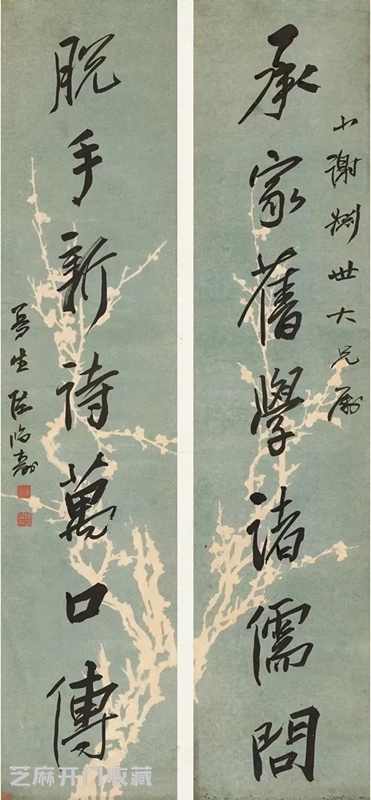 小謝世大兄屬
承家舊學諸儒問
脫手新詩萬口傳
曼生陳鴻壽
芝麻开门收藏